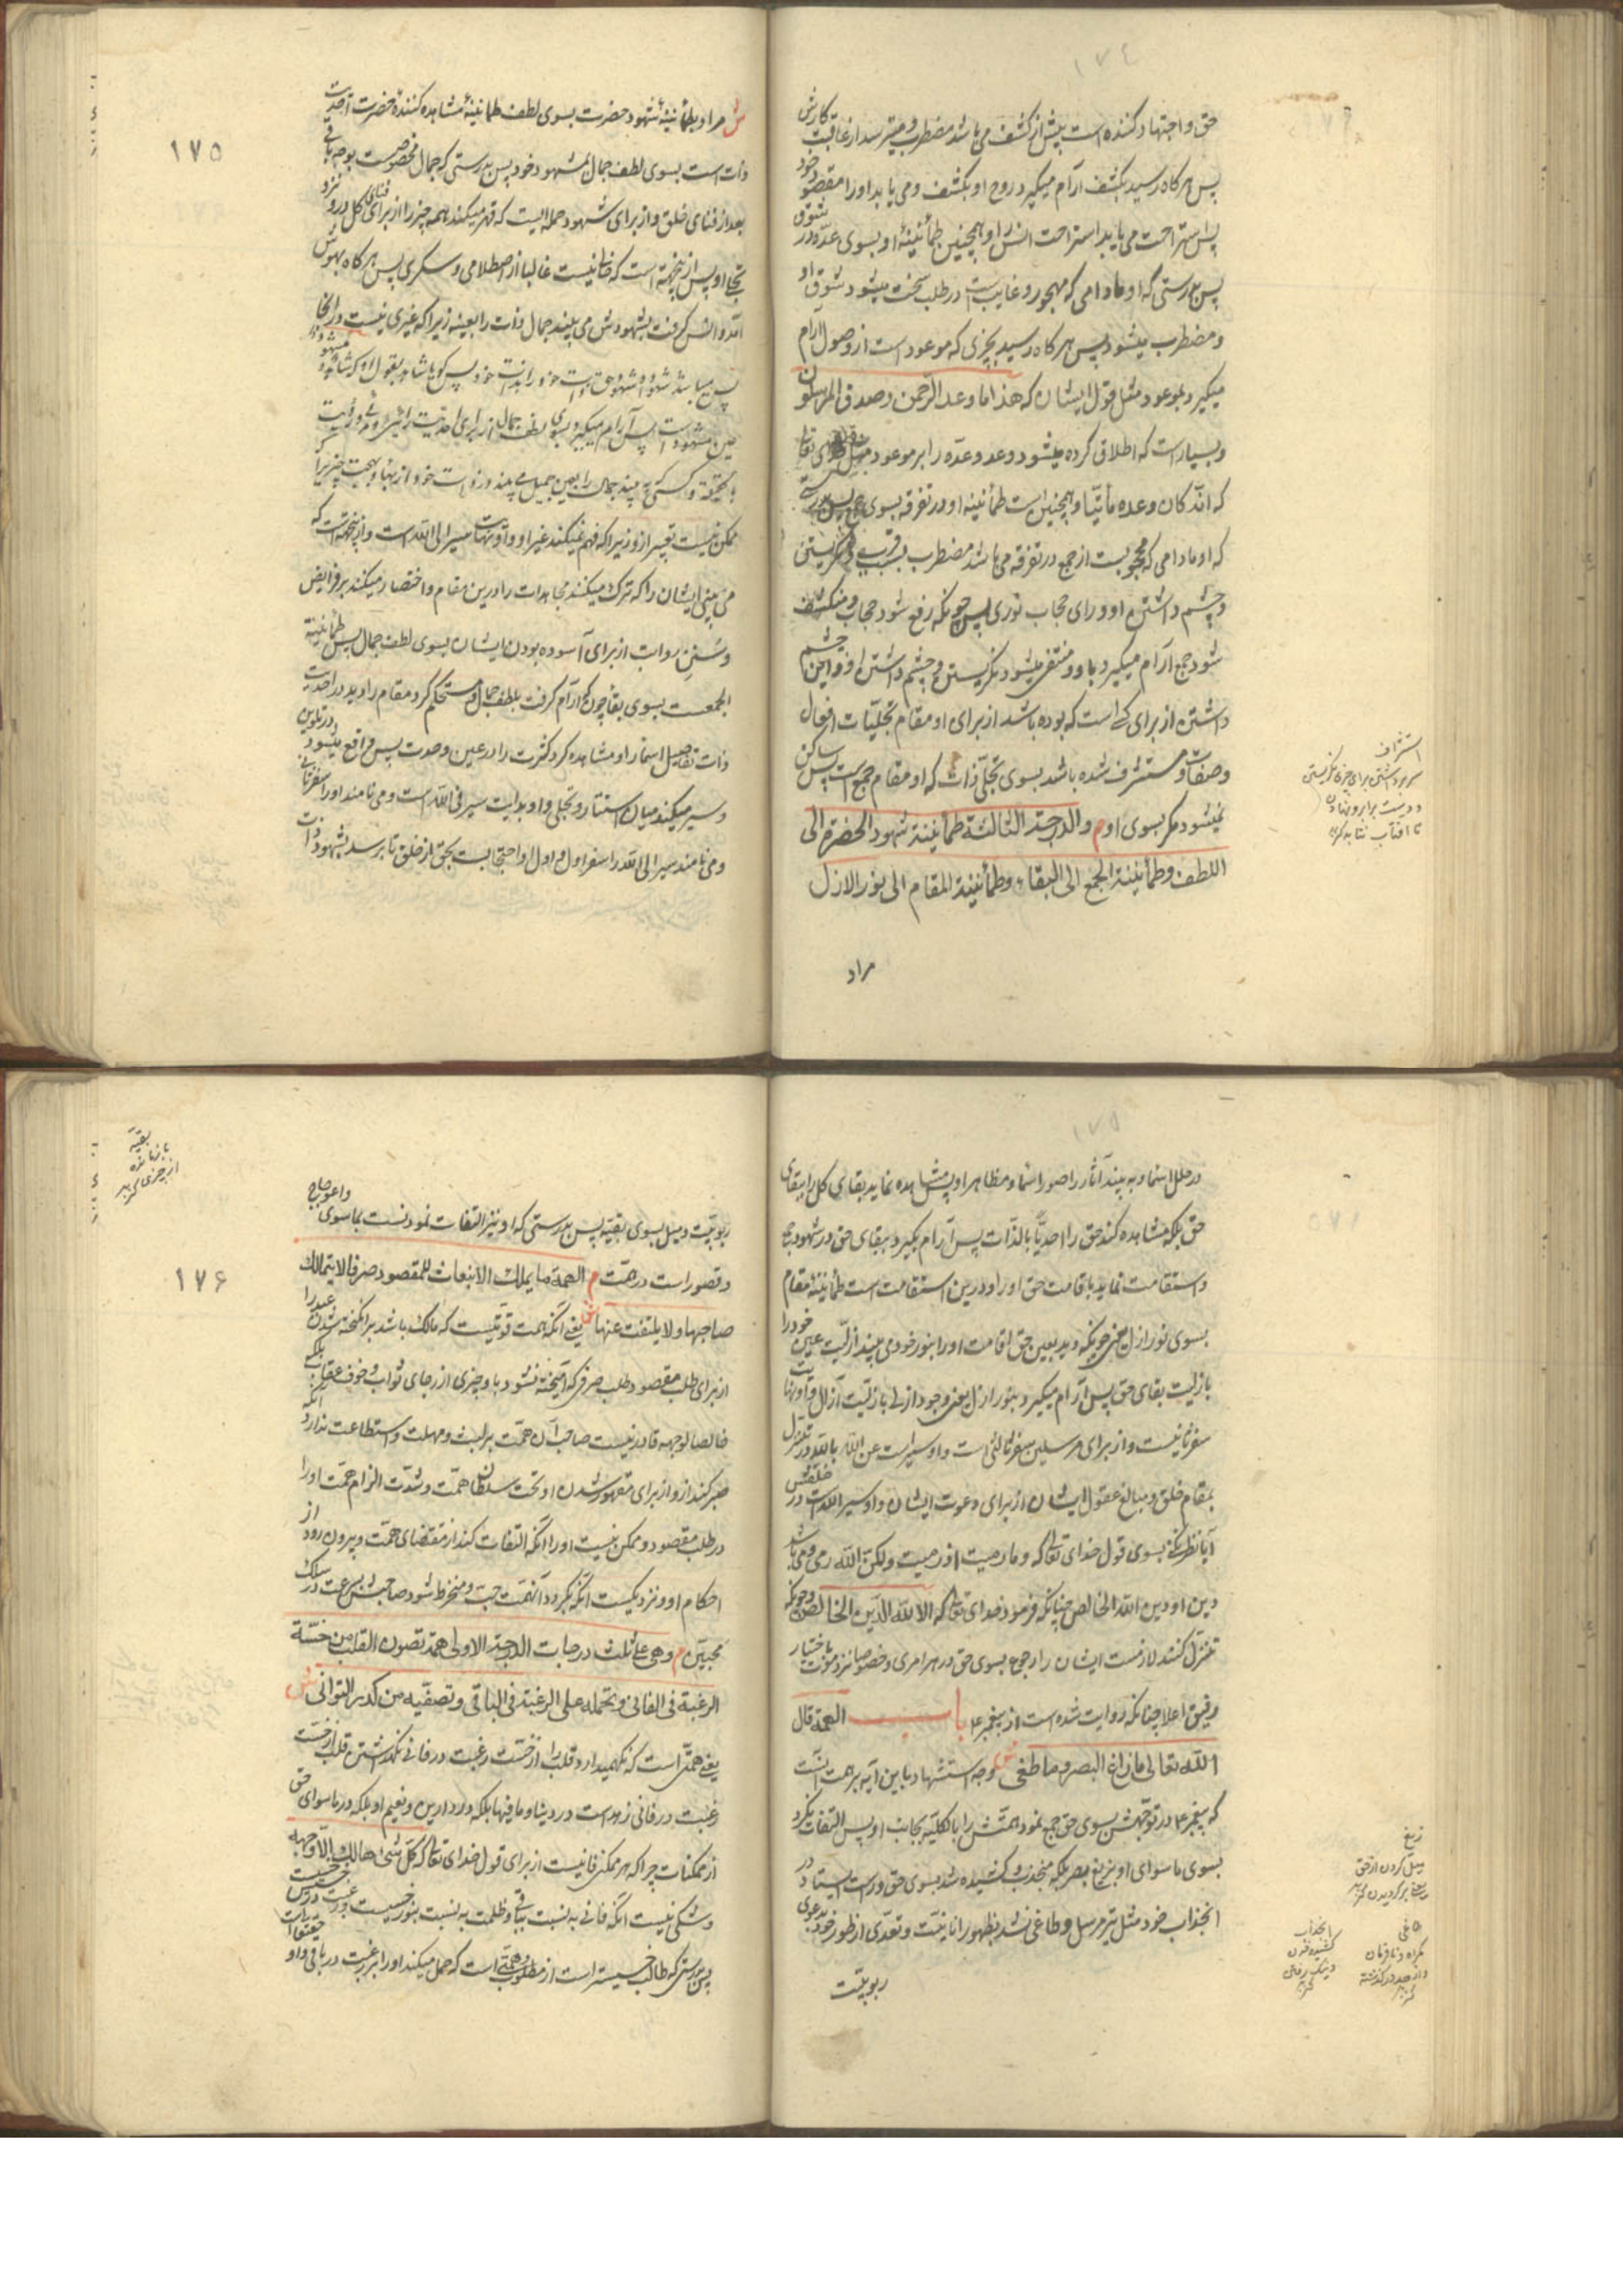 حق و اجتهاد کننده است پیش از کشف می باشد مضطرب و میترسد از عاقبت کارش
پس هر کاه رسید بکشف آرام میکیرد روح او بکشف و می یابد او را مقصود خود
پس استراحت می یابد استراحت انس را و همچنین طمأنینهٔ او بسوی عدّه در شوق
پس بدرستی که او مادامی که مهجور و غایب است در طلب سخت میشود شوق او
و مضطرب میشود پس هر کاه رسید بچیزی که موعود است از وصول آرام
میکیرد بموعود مثل قول ایشان که هذا ما وعد الرّحمن و صدق المرسلون
و بسیار است که اطلاق کرده میشود وعد و وعده را بر موعود مثل قول خدای تعا
که انّه کان وعده مأتیّا و همچنین است طمأنینه او در تفرقه بسوی جمع پس بدرستی
که او مادامی که محجوبست از جمع در تفرقه می باشد مضطرب بسبب نکریستن
و چشم داشتن او ورای حجاب نوری پس چونکه رفع شود حجاب و منکشف
شود جمع آرام میکیرد باو و منتفی میشود نکریستن و چشم داشتن او و این چشم
داشتن از برای کسی است که بوده باشد از برای او مقام تجلّیات افعال
و صفات و مستشرف شده باشد بسوی تجلّی ذات که او مقام جمع است پس ساکن
نمیشود مکر بسوی او م والدرجة الثالثة طمأنینة شهود الحضرة الی
اللطف وطمأنینة الجمع الی البقاء وطمأنینة المقام الی نور الازل
مراد
استشراف
سر برداشتن برای چیزی نکریستن
و دست برابرو نهادن
تا افتاب نتابه کنز
۱۷۵
ش مراد بطمأنینهٔ شهود حضرت بسوی لطف طمانینهٔ مشاهده کنندهٔ حضرت احدیت
ذات است بسوی لطف جمال مشهود خود پس بدرستی که جمال مخصوص است بوجه باقی
بعد از فنای خلق و از برای شهود حمله ایست که قهر میکند همه چیز را از برای فنای کل در و نزد
تجلّی او پس از ینجهة است که خالی نیست غالبا از اصطلامی و سکری پس هر کاه بهوش
آمد و انس کرفت بشهودش می بیند جمال ذات را بعینه زیرا که غیری نیست در انجا
عین مشهود است پس آرام میکیرد بسوی لطف جمال از برای احدیت رائی و مرئی و رؤیت
ممکن نیست تعبیر ازو زیرا که فهم نمیکند غیر او و او نهایت سیر الی الله است و از ینجهة است که
می بینی ایشان را که ترک میکنند مجاهدات را درین مقام و اختصار میکنند بر فرایض
و سنن رواتب از برای آسوده بودن ایشان بسوی لطف جمال پس طمأنینة
الجمعست بسوی بقا چون که آرام کرفت بلطف جمال و مستحکم کرد مقام را دید در احدیت
ذات تفاصیل اسما را و مشاهده کرد کثرت را در عین وحدت پس واقع میشود در تلوین
و سیر میکند میان استتار و تجلی و او بدایت سیر فی الله است و می نامند او را سفر ثانی
و می نامند سیر الی الله را سفر اول و اول او احتجابست بحق از خلق تا برسد بشهود ذات
در ظلل اسما و به بیند آثار را صور اسما و مظاهر او پس مشاهده نماید بقای کل را ببقای
حق بلکه مشاهده کند حق را احدیًّا بالذّات پس آرام بکیرد ببقای حق در شهود بقا
و استقامت نماید باقامت حق او را و درین استقامت است طمأنینهٔ مقام
بسوی نور ازل یعنی چونکه دید بعین حق اقامت او را بنور خود می بیند ازلیّت عین خود را
بازلیّت بقای حق پس آرام میکیرد بنور ازل یعنی وجود ازلی بازلیّت آزال و او نهایت
سفر ثانیست و از برای مرسلین سفر ثالثی است و او سیراست عن الله بالله در تنزل
بمقام خلق و مبالغ عقول ایشان از برای دعوت ایشان و او سیر الله است در خلقش
آیا نظر نکنی بسوی قول خدای تعا که و ما رمیت اذ رمیت ولکنّ الله رمی و می باشد
دین او دین الله الخالص چنانکه فرمود خدای تعا که الا لله الدّین الخالص و چونکه
تنزل کنند لازمست ایشان را رجوع بسوی حق در هر امری و خصوصا نزد موت باختیار
رفیق اعلا چنانکه روایت شده است از پیغمبر ع باب الهمة قال
الله تعالی ما زاغ البصر وما طغی ش وجه استشهاد باین آیه بر همت انست
که پیغمبر ع در توجّهش بسوی حق جمع نمود همّتش را بالکلیّه بجانب او پس التفات نکرد
بسوی ما سوای او بزیغ بصر بلکه منجذب و کشیده شد بسوی حق و راست ایستاد در
انجذاب خود مثل تیر مرسل و طاغی نشد بظهور انانیّت و تعدّی از طور خود بدعوی
ربوبیّت
زیغ
میل کردن از حق
طاغی
کمراه و نافرمان
و از حد در کذشته
کنز
انجذاب
کشیده شدن
کنز
بقیّه
باز مانده
از چیزی کنز
۱۷۶
ربوبیّت و میل بسوی بقیّه پس بدرستی که او نیز التفات نمودنست بماسوی و اعوجاج
و قصور است در همّت م الهمة ما یملك الانبعاث للمقصود صرفا لا یتمالك
صاحبها ولا یلتفت عنها ش یعنی آنکه همت قوتیست که مالک باشد برانکیخته شدن عبد را
از برای طلب مقصود طلب صرفی که آمیخته نشود باو چیزی از رجای ثواب و خوف عقاب بلکه
خالصا لوجهه قادر نیست صاحب آن همّت بر لبث و مهلت و استطاعت ندارد آنکه
صبر کند ازو از برای مقهور شدن او تحت سلطان همّت و شدّت الزام همّت او را
در طلب مقصود و ممکن نیست او را آنکه التفات کند از مقتضای همّت و بیرون رود از
احکام او و نزدیکست آنکه بکردد آنهمّت حبّ و منخرط شود صاحبش بسرعت در سلک
محبّین م وهی علی ثلث درجات الدرجة الاولی همّة تصون القلب من خسّة
الرغبة فی الفانی وتحمله علی الرغبة فی الباقی وتصفّیه من کدر التوانی ش
یعنی همّتی است که نکهمیدارد قلب را از خسّت رغبت در فانی نکهداشتن قلب از خسّت
رغبت در فانی زهد است در دنیا و ما فیها بلکه در دارین و نعیم او بلکه در ماسوای حق
از ممکنات چرا که هر ممکنی فانیست از برای قول خدای تعا که کلّ شیء هالك الّا وجهه
و شکّی نیست آنکه فانی به نسبت بباقی و ظلمت به نسبت بنور خسیست و رغبت در خسیس
پس بدرستی که طالب خسیستر است از مطلوب و همّتی است که حمل میکند او را بر رغبت در باقی و او